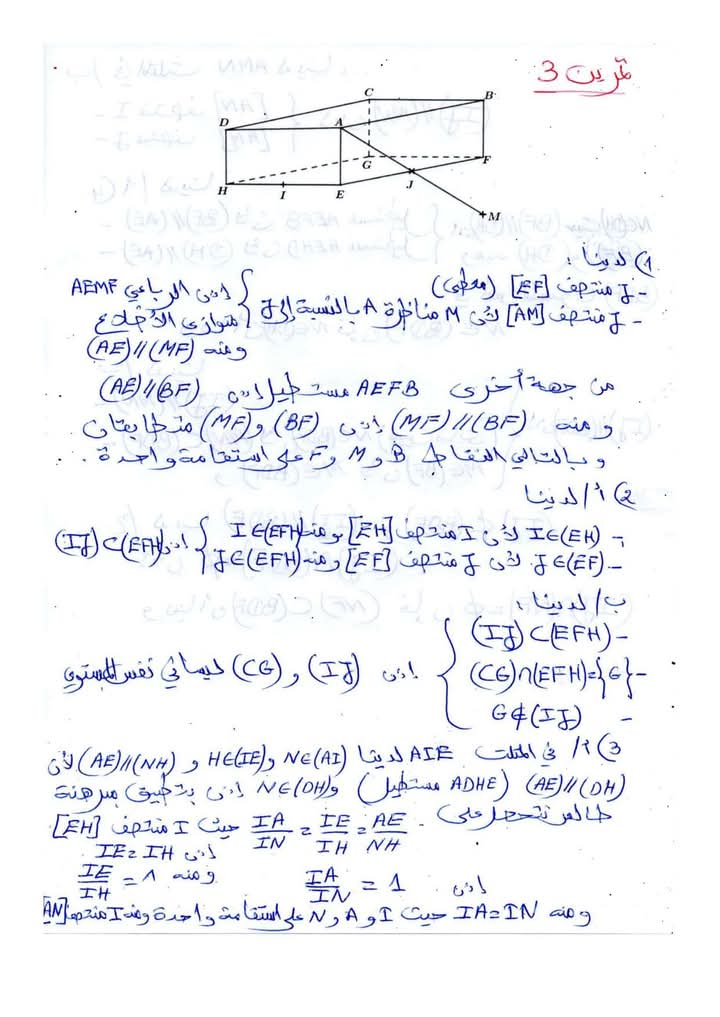 تمرين 3
C B
D A
G F
H I E J
M
1) لدينا :
- J منتصف [EF] (معطى)
- J منتصف [AM] لأن M مناظرة A بالنسبة إلى J } اذن الرباعي AEMF متوازي الأضلاع
ومنه (AE)//(MF)
من جهة أخرى AEFB مستطيل اذن (AE)//(BF)
ومنه (MF)//(BF) اذن (BF) و (MF) متطابقان
وبالتالي النقاط B و M و F على استقامة واحدة .
2) أ/ لدينا
- I∈(EH) لأن I منتصف [EH] ومنه I∈(EFH)
- J∈(EF) لأن J منتصف [EF] ومنه J∈(EFH) } اذن (IJ)⊂(EFH)
ب/ لدينا :
- (IJ)⊂(EFH)
- (CG)∩(EFH)={G} } اذن (IJ) و (CG) ليسا في نفس المستوي
- G∉(IJ)
3) أ/ في المثلث AIE لدينا N∈(AI) و H∈(IE) و (AE)//(NH) لأن
(AE)//(DH) (ADHE مستطيل) و N∈(DH) اذن بتطبيق مبرهنة
طالس نتحصل على IA/IN = IE/IH = AE/NH حيث I منتصف [EH]
اذن IE=IH
ومنه IE/IH = 1 اذن IA/IN = 1
ومنه IA=IN حيث I و A و N على استقامة واحدة ومنه I منتصف [AN]